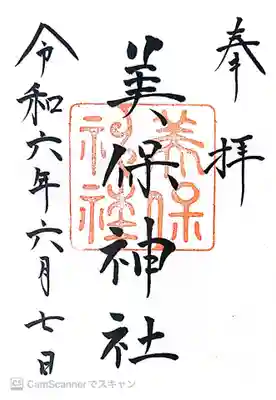 奉拝
美保神社
美保
神社
令和六年六月七日
CS CamScannerでスキャン